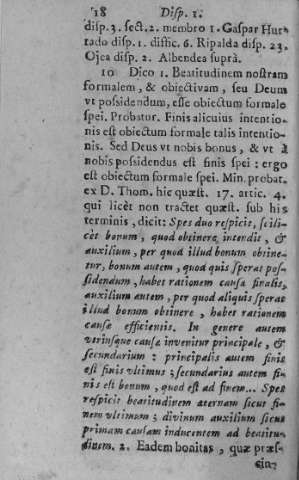 18 Disp. 1.
disp. 3. sect. 2. membro 1. Gaspar Hur-
tado disp. 1. diffic. 6. Ripalda disp. 23.
Ojea disp. 2. Albendea suprà.
10 Dico 1. Beatitudinem nostram
formalem, & obiectivam, seu Deum
vt possidendum, esse obiectum formale
spei. Probatur. Finis alicuius intentio-
nis est obiectum formale talis intentio-
nis. Sed Deus vt nobis bonus, & vt à
nobis possidendus est finis spei: ergo
est obiectum formale spei. Min. probat.
ex D. Thom. hic quæst. 17. artic. 4.
qui licèt non tractet quæst. sub his
terminis, dicit: Spes duo respicit, scili-
cèt bonum, quod obtinere intendit, &
auxilium, per quod illud bonum obtine-
tur, bonum autem, quod quis sperat pos-
sidendum, habet rationem causæ finalis,
auxilium autem, per quod aliquis sperat
illud bonum obtinere, habet rationem
causæ efficientis. In genere autem
vtriusque causæ invenitur principale, &
secundarium: principalis autem finis
est finis vltimus; secundarius autem fi-
nis est bonum, quod est ad finem... Spes
respicit beatitudinem æternam sicut fi-
nem vltimum; divinum auxilium sicut
primam causam inducentem ad beatitu-
dinem. 2. Eadem bonitas, quæ præs-